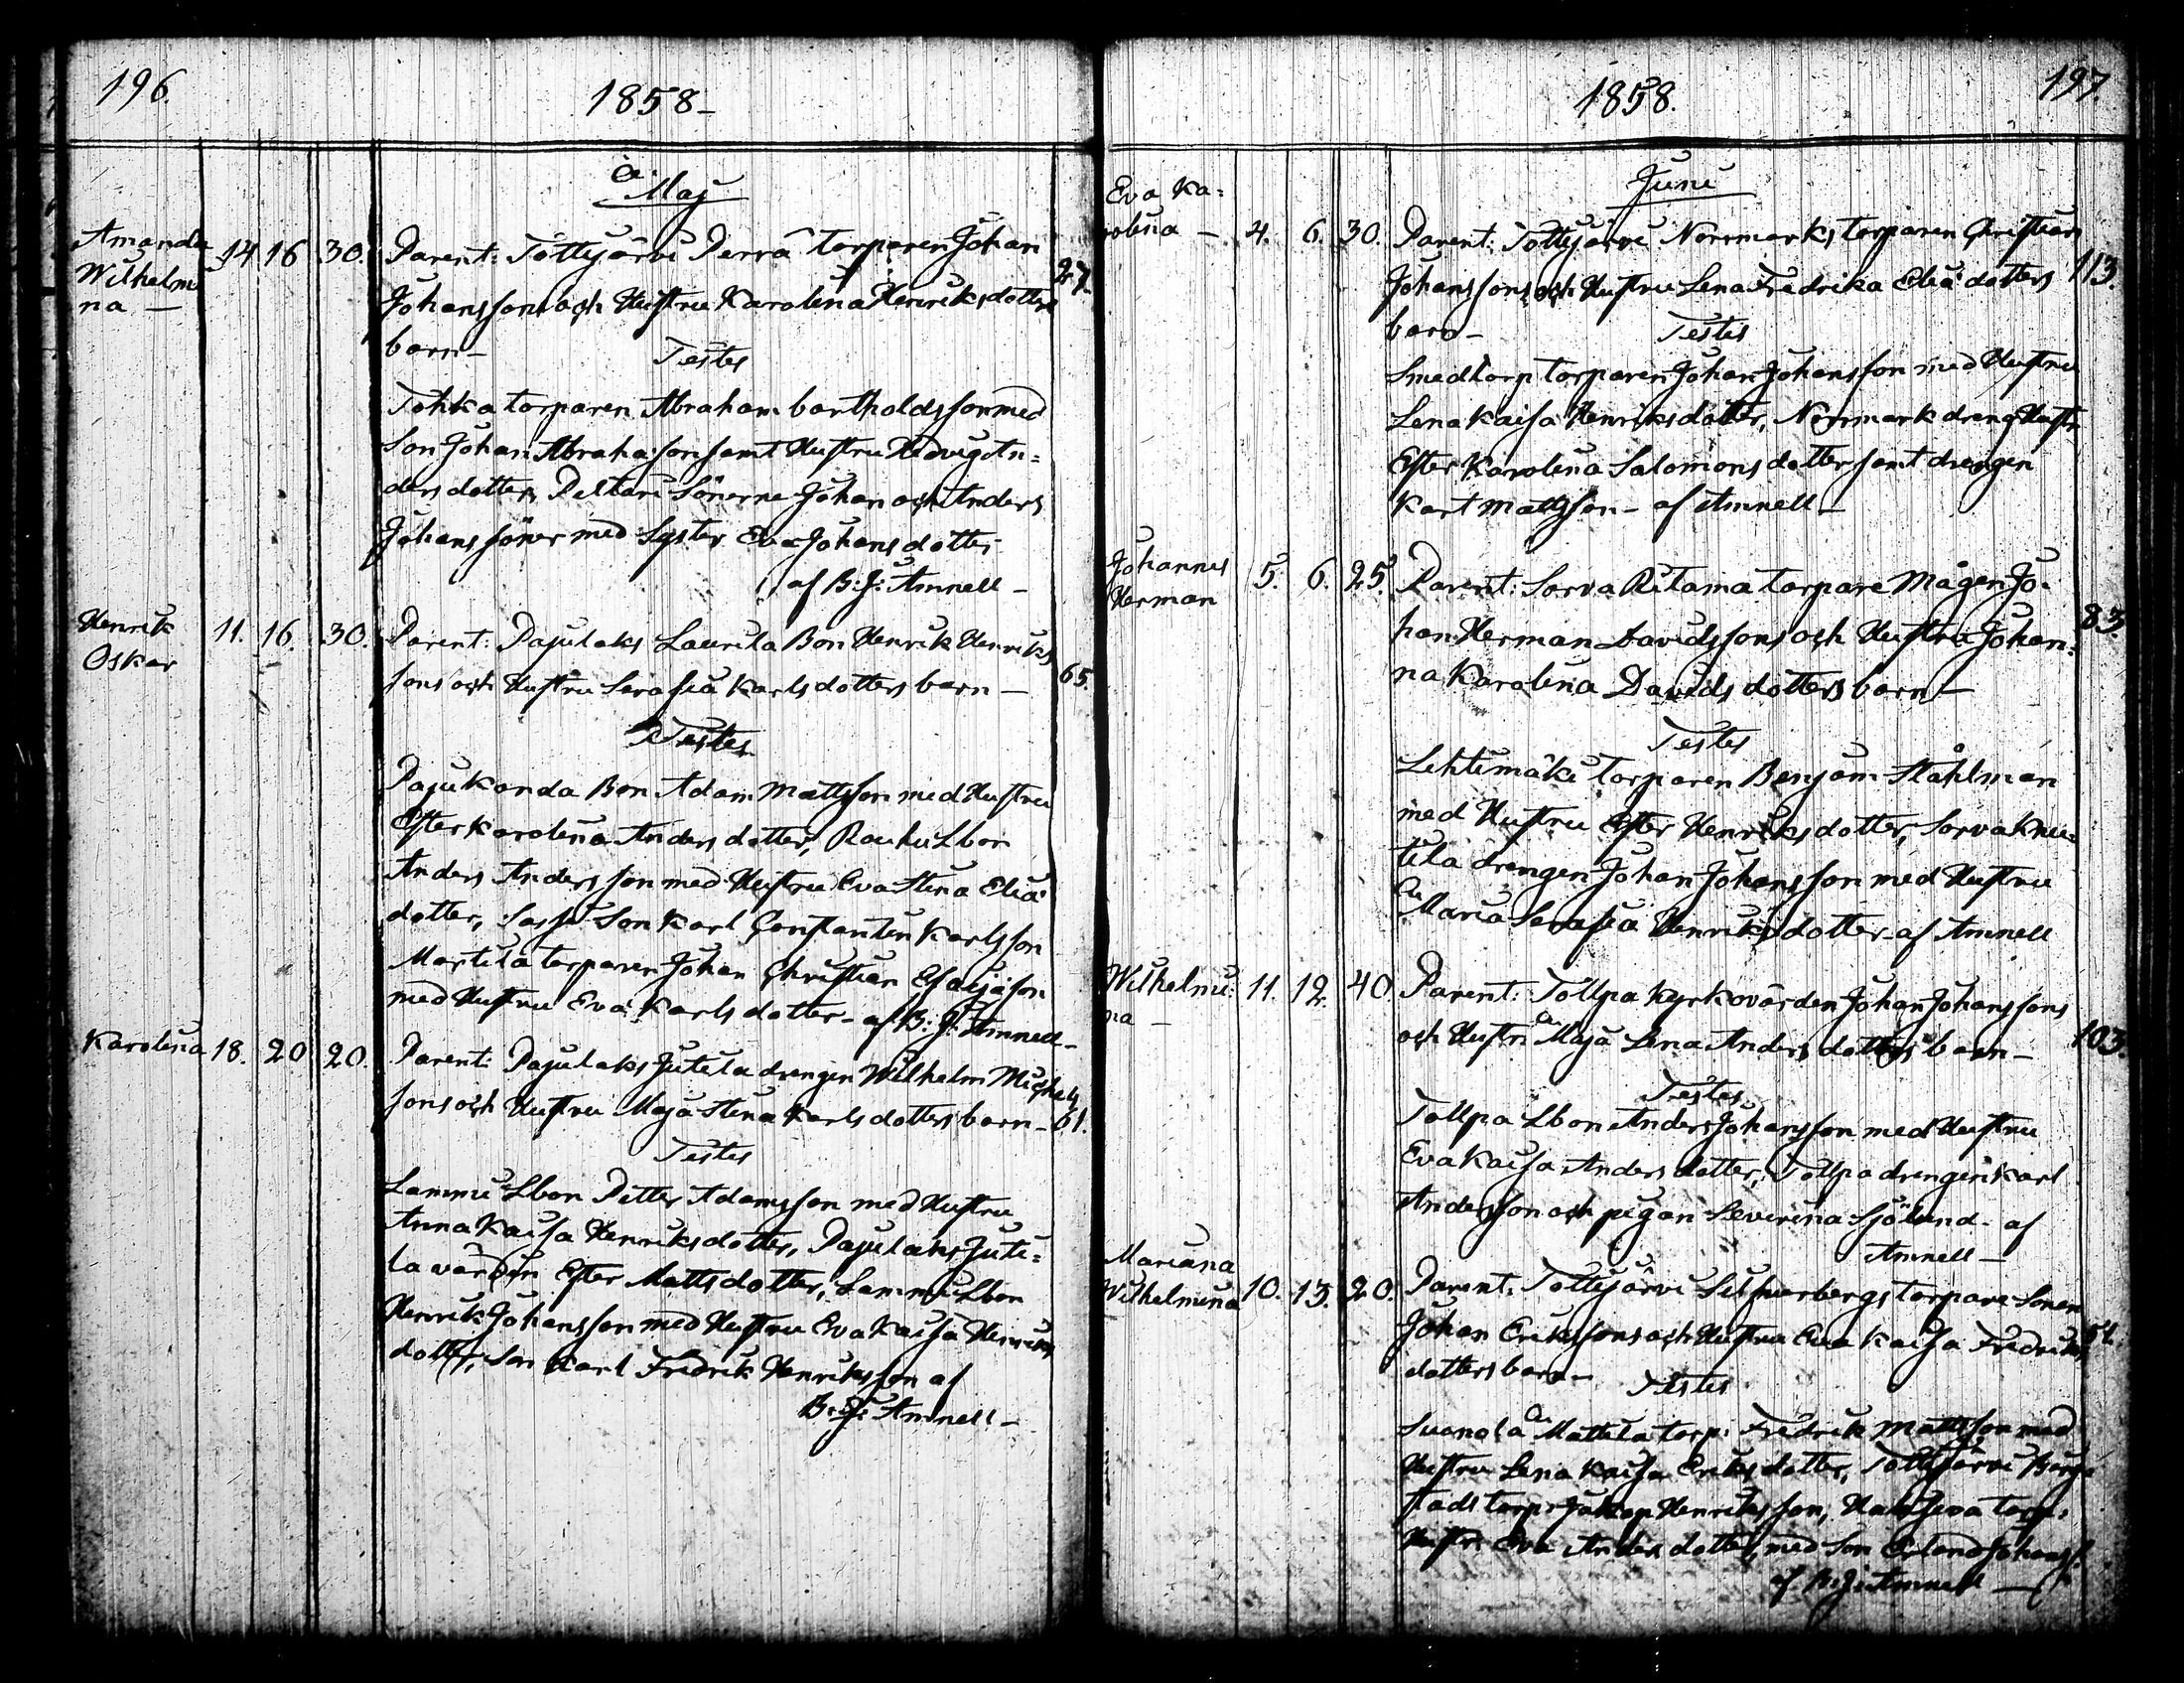 196.
1858-
Maj
Amanda Wilhelmi na — 14 16 30. Parent: Tottijärvi Perrå torparen Johan
Johanssons och Hustru Karolina Henriksdotters 27.
barn-
Testes
Tohka torparen Abraham bartholdsson med
Son Johan Abrahasson samt Hustru Hedvig An=
dersdotter, Peltari Sönerne Johan och Anders
Johanssöner med Syster Eva Johansdotter
af B: J: Amnell -
Henrik Oskar 11. 16. 30. Parent: Pajulaks Laurila Bon Henrik Henriks
sons och Hustru Serafia Karlsdotters barn - 65.
Testes
Pajukanda Bon Adam Mattsson med Hustru
Ester Karolina Andersdotter, Rauhu Lbon
Anders Andersson med Hustru Eva Stina Eliä
dotter, Sassi Son Karl Constantin Karlsson
Martila torparen Johan Christian Esaijason
med Hustru Eva Karlsdotter - af B: J: Amnell -
Karolina 18. 20 20. Parent: Pajulaks Jutila drengen Wilhelm Michels
sons och Hustru Maja Stina Karlsdotters barn - 61.
Testes
Lammi Lbon Petter Adamsson med Hustru
Anna Kaisa Henriksdotter, Pajulaks Juti=
la värdin Ester Mattsdotter, Lammi Lbon
Henrik Johansson med Hustru Eva Kaisa Henriks
dotter, Son Karl Fredrik Henriksson af
B: J: Amnell -
1858.
197.
Juni
Eva Ka= rolina - 4. 6. 30. Parent: Tottijärvi Norrmarks torparen Christian
Johanssons och Hustru Lena Fredrika Eliä dotters 113.
barn-
Testes
Smedtorp torparen Johan Johansson med Hustru
Lena Kaisa Henriksdotter, Norrmark dreng Hustr
Ester Karolina Salomonsdotter samt drengen
Karl Mattsson - af Amnell -
Johannes Herman 5. 6. 25. Parent: Sorva Ritama torpare Mågen Jo-
han Herman Davidssons och Hustru Johan= 83.
na Karolina Davidsdotters barn -
Testes
Lehtimäki Torparen Benjam Ståhlman
med Hustru Ester Henriksdotter, Sorva Knu
tila drengen Johan Johansson med Hustru
Maria Serafia Henriksdotter - af Amnell
Wilhelmi: na - 11. 12. 40 Parent: Tollpa Kyrkovärden Johan Johanssons
och Hustru Maja Lena Andersdotters barn - 103.
Testes
Tollpa Lbon Anders Johansson med Hustru
Eva Kaisa Andersdotter, Tollpa drengen Karl
Andersson och pigan Severina Sjölund - af
Amnell -
Mariana Wilhelmina 10. 13. 20. Parent: Tottijärvi Silfverbergs torpare Sonen
Johan Erikssons och Hustru Eva Kaisa Fredriks 54.
dotters barn -
Testes
Suonola Mattila torp: Fredrik Mattsson med
Hustru Lena Kaisa Eriksdotter, Tottijärvi Berg
stads torp: Jakop Henriksson, torp:
Hustru Eva Andersdotter, med Son Erland Johanss:
af B: J: Amnell -